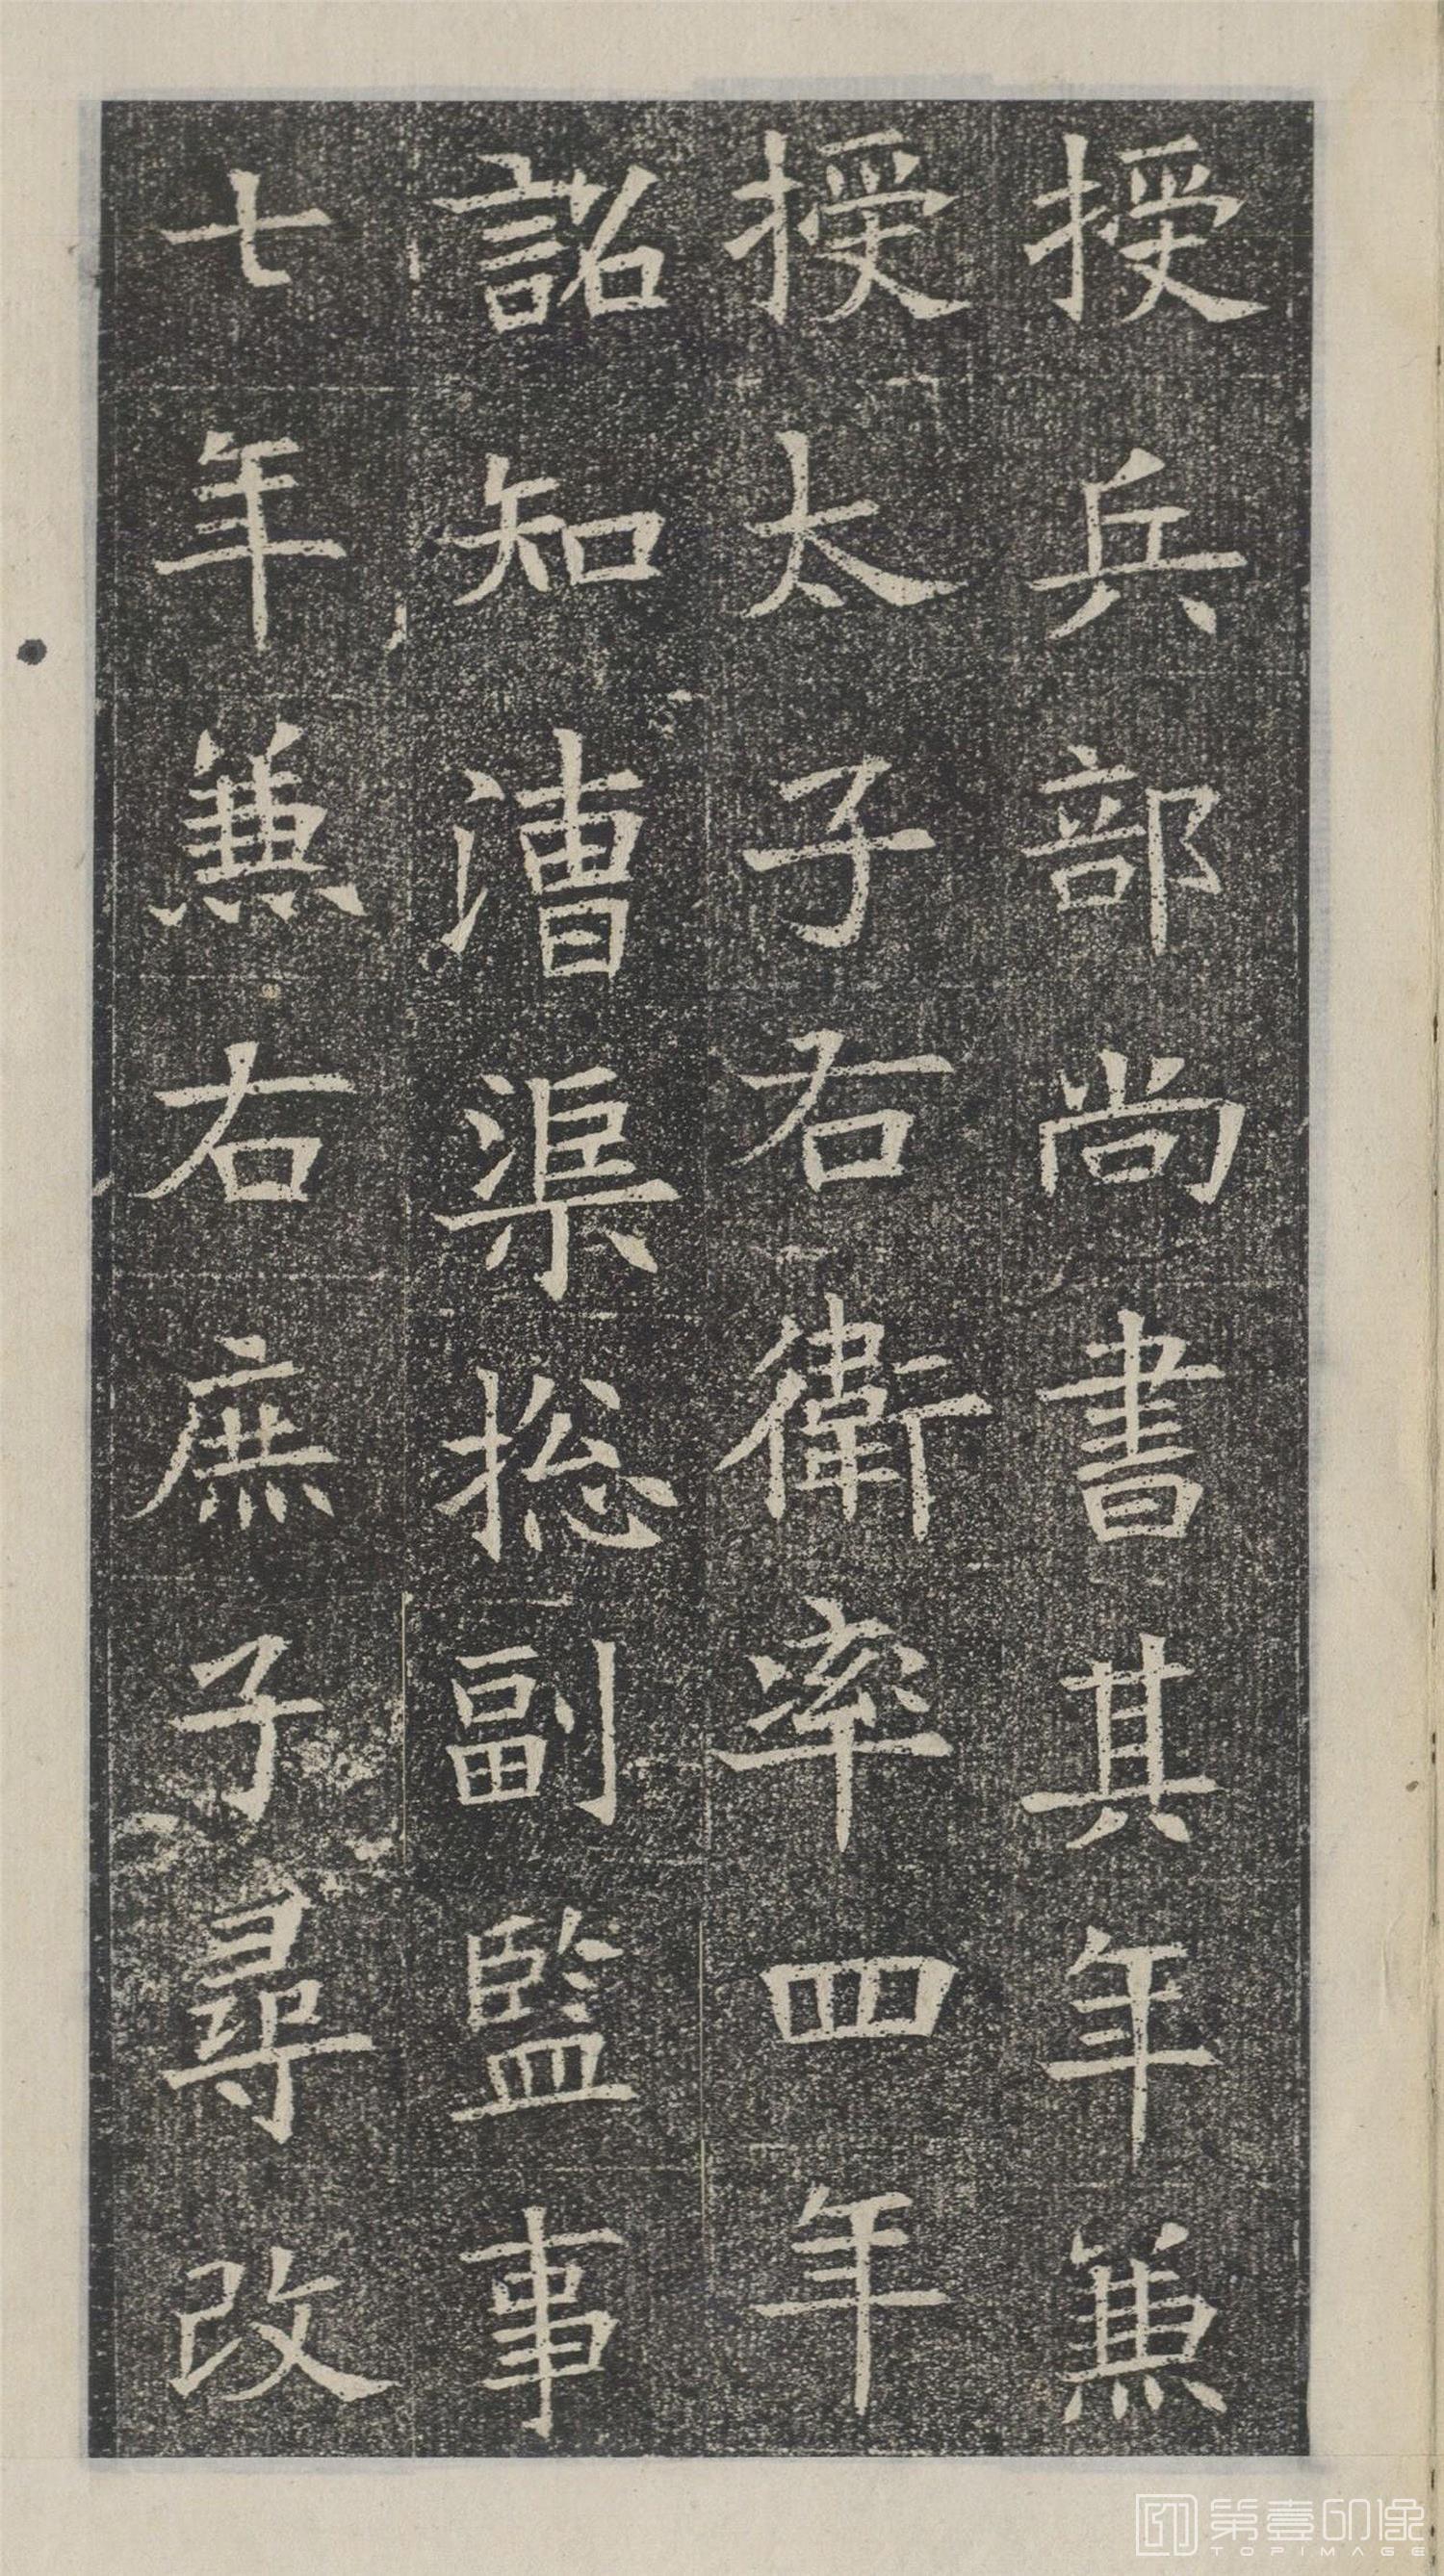 授兵部尚書其年兼
授太子右衛率四年
詔知漕渠捴副監事
七年兼右庶子尋改
第壹印像
TOPIMAGE